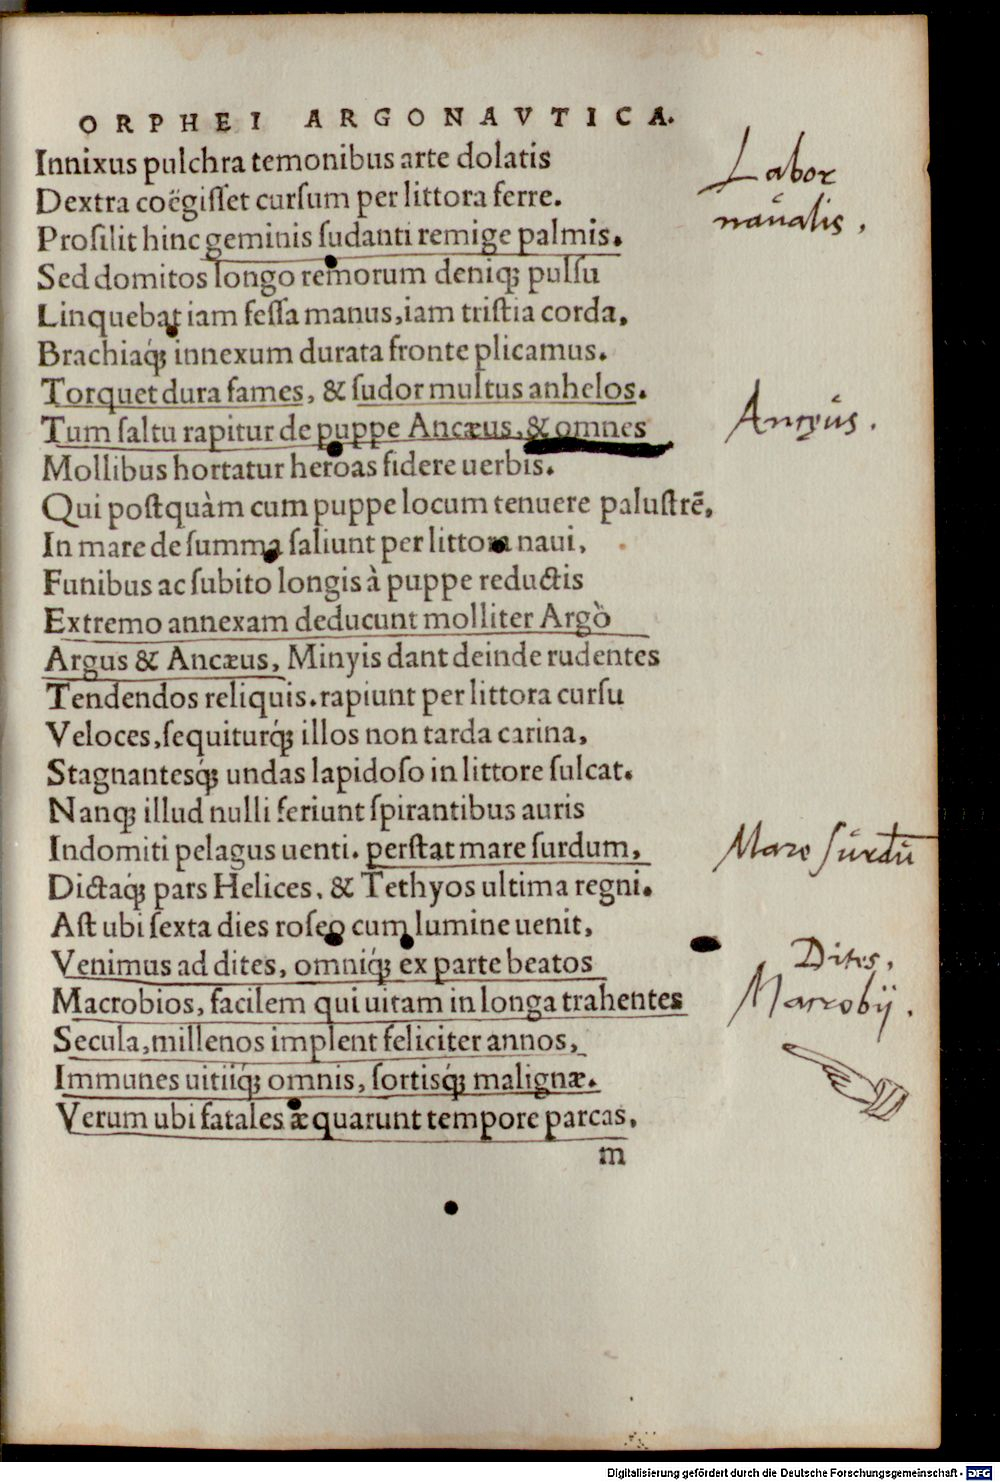 ORPHEI ARGONAVTICA.
Innixus pulchra temonibus arte dolatis
Dextra coëgiſſet curſum per littora ferre.
Proſilit hinc geminis ſudanti remige palmis.
Sed domitos longo remorum deniqꝫ pulſu
Linquebat iam feſſa manus, iam triſtia corda,
Brachiaq́ꝫ innexum durata fronte plicamus.
Torquet dura fames, & ſudor multus anhelos.
Tum ſaltu rapitur de puppe Ancæus, & omnes
Mollibus hortatur heroas fidere uerbis.
Qui poſtquàm cum puppe locum tenuere paluſtrē,
In mare de ſumma ſaliunt per littora naui,
Funibus ac ſubito longis à puppe reductis
Extremo annexam deducunt molliter Argò
Argus & Ancæus, Minyis dant deinde rudentes
Tendendos reliquis. rapiunt per littora curſu
Veloces, ſequiturq́ꝫ illos non tarda carina,
Stagnantesq́ꝫ undas lapidoſo in littore ſulcat.
Nanqꝫ illud nulli feriunt ſpirantibus auris
Indomiti pelagus uenti. perſtat mare ſurdum,
Dictaq́ꝫ pars Helices, & Tethyos ultima regni.
Aſt ubi ſexta dies roſeo cum lumine uenit,
Venimus ad dites, omniq́ꝫ ex parte beatos
Macrobios, facilem qui uitam in longa trahentes
Secula, millenos implent feliciter annos,
Immunes uitiiq́ꝫ omnis, ſortisq́ꝫ malignæ.
Verum ubi fatales æquarunt tempore parcas,
m
Labor
naualis.
Ancæus.
Mare ſurdū
Dites.
Macrobij.
Digitalisierung gefördert durch die Deutsche Forschungsgemeinschaft - DFG